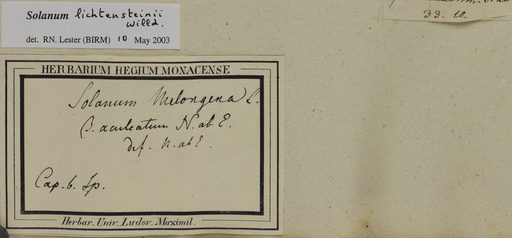 Solanum lichtensteinii
Willd.
det. RN. Lester (BIRM) 10 May 2003
33. a.
HERBARIUM REGIUM MONACENSE
Solanum Melongena L.
B. aculeatum N. ab E.
def. N. ab E.
Cap. b. Sp.
Herbar. Univ. Ludov. Maximil.